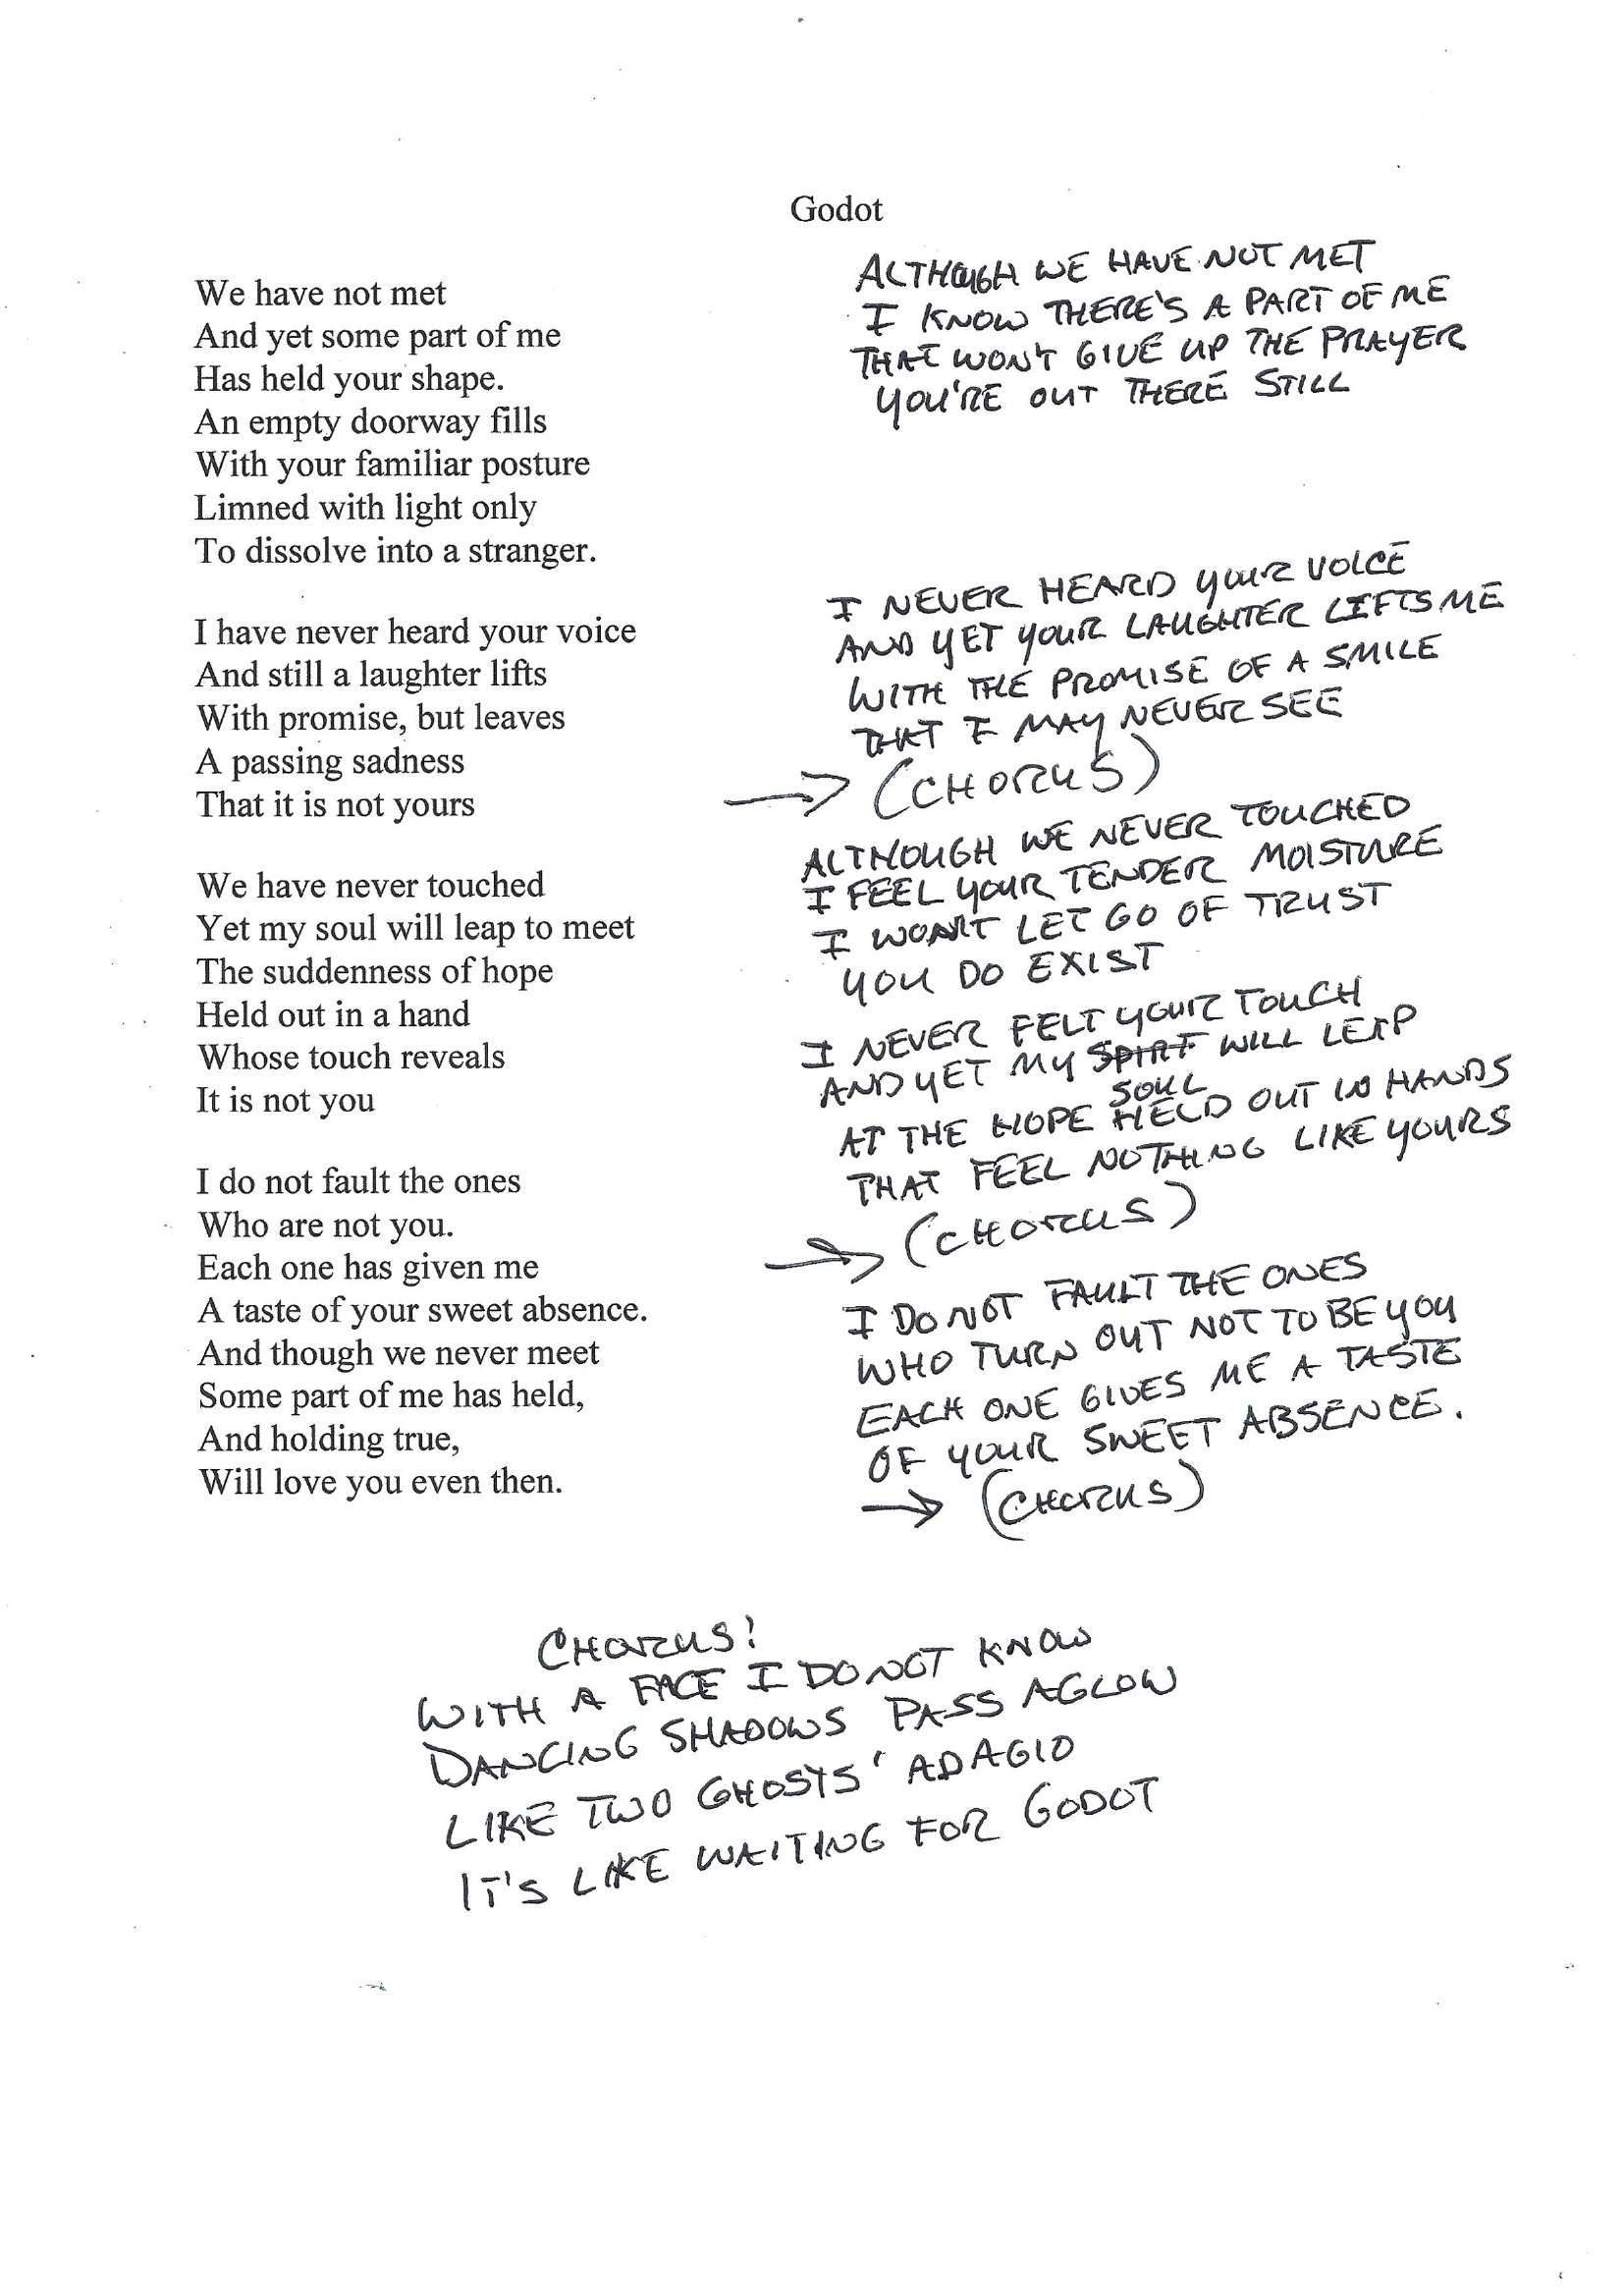 Godot
We have not met
And yet some part of me
Has held your shape.
An empty doorway fills
With your familiar posture
Limned with light only
To dissolve into a stranger.
I have never heard your voice
And still a laughter lifts
With promise, but leaves
A passing sadness
That it is not yours
We have never touched
Yet my soul will leap to meet
The suddenness of hope
Held out in a hand
Whose touch reveals
It is not you
I do not fault the ones
Who are not you.
Each one has given me
A taste of your sweet absence.
And though we never meet
Some part of me has held,
And holding true,
Will love you even then.
ALTHOUGH WE HAVE NOT MET
I KNOW THERE'S A PART OF ME
THAT WON'T GIVE UP THE PRAYER
YOU'RE OUT THERE STILL
I NEVER HEARD YOUR VOICE
AND YET YOUR LAUGHTER LIFTS ME
WITH THE PROMISE OF A SMILE
THAT I MAY NEVER SEE
→ (CHORUS)
ALTHOUGH WE NEVER TOUCHED
I FEEL YOUR TENDER MOISTURE
I WON'T LET GO OF TRUST
YOU DO EXIST
I NEVER FELT YOUR TOUCH
AND YET MY SPIRIT WILL LEAP
SOUL
AT THE HOPE HELD OUT IN HANDS
THAT FEEL NOTHING LIKE YOURS
→ (CHORUS)
I DO NOT FAULT THE ONES
WHO TURN OUT NOT TO BE YOU
EACH ONE GIVES ME A TASTE
OF YOUR SWEET ABSENCE.
→ (CHORUS)
CHORUS!
WITH A FACE I DO NOT KNOW
DANCING SHADOWS PASS AGLOW
LIKE TWO GHOSTS' ADAGIO
IT'S LIKE WAITING FOR GODOT